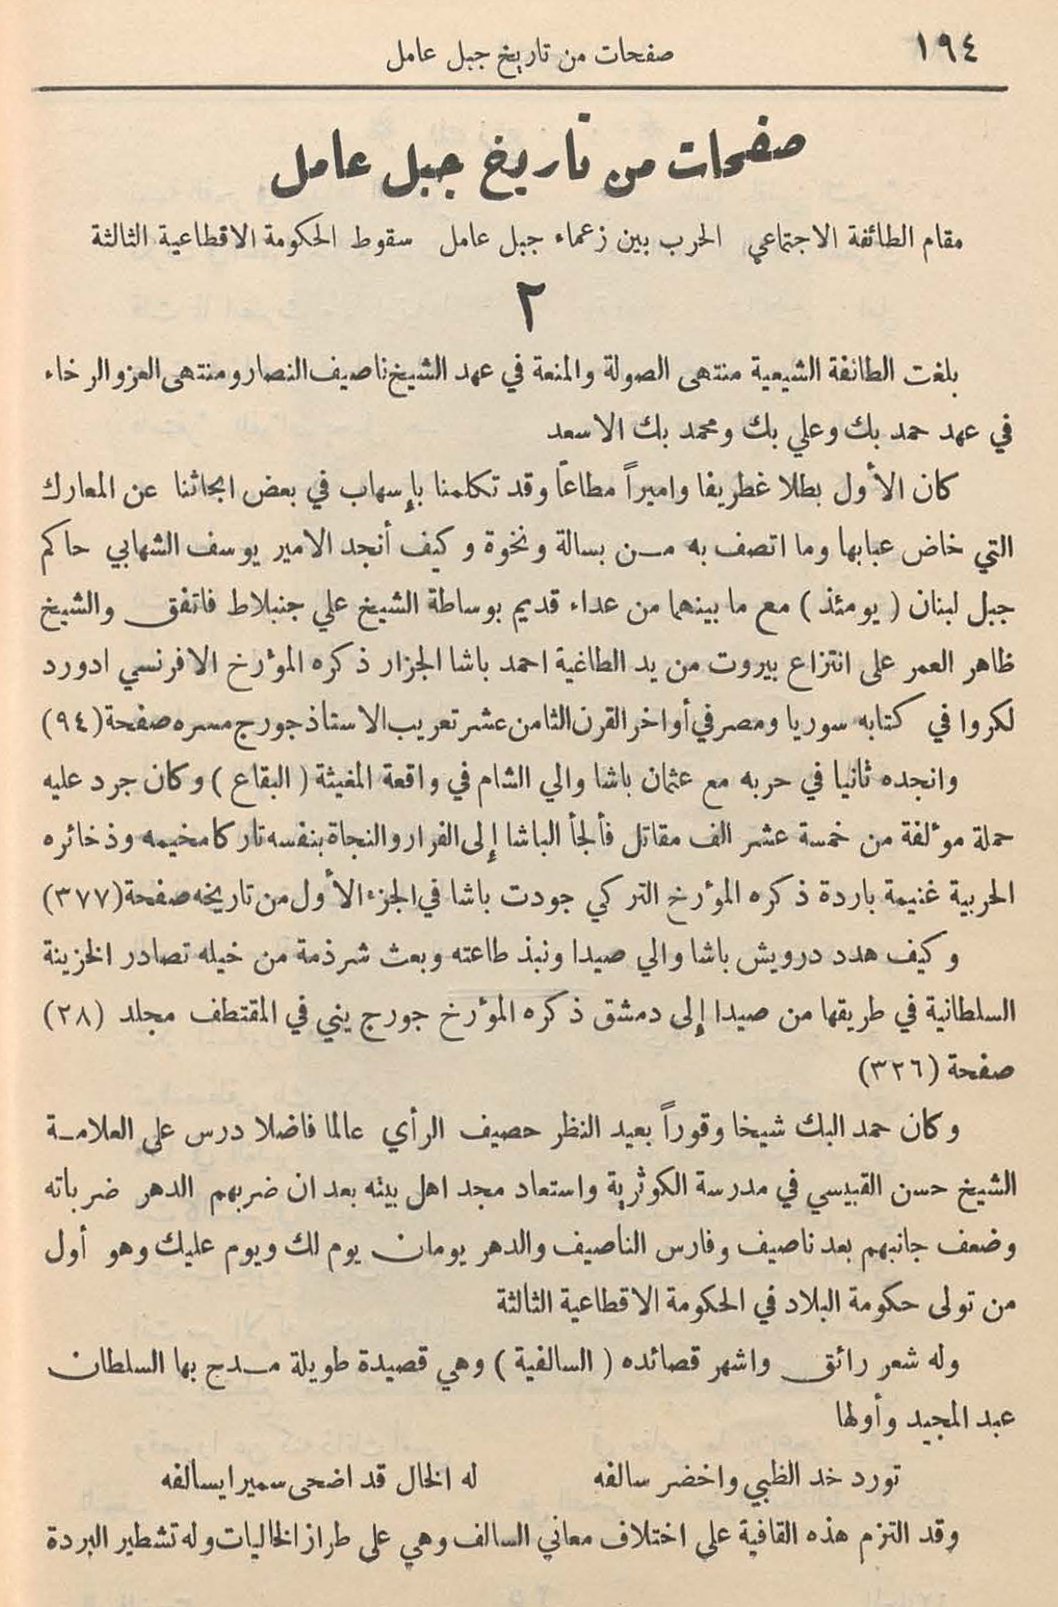 ١٩٤
صفحات من تاريخ جبل عامل
صفحات من تاريخ جبل عامل
مقام الطائفة الاجتماعي الحرب بين زعماء جبل عامل سقوط الحكومة الاقطاعية الثالثة
٢
بلغت الطائفة الشيعية منتهى الصولة والمنعة في عهد الشيخ ناصيف النصار ومنتهى العز والرخاء
في عهد حمد بك وعلي بك ومحمد بك الاسعد
كان الأول بطلا غطريفا واميراً مطاعاً وقد تكلمنا بإسهاب في بعض ابحاثنا عن المعارك
التي خاض عبابها وما اتصف به مــن بسالة ونخوة وكيف أنجد الامير يوسف الشهابي حاكم
جبل لبنان ( يومئذ ) مع ما بينهما من عداء قديم بوساطة الشيخ علي جنبلاط فاتفق والشيخ
ظاهر العمر على انتزاع بيروت من يد الطاغية احمد باشا الجزار ذكره المؤرخ الافرنسي ادورد
لكروا في كتابه سوريا ومصر في أواخر القرن الثامن عشر تعريب الاستاذ جورج مسره صفحة (٩٤)
وانجده ثانيا في حربه مع عثمان باشا والي الشام في واقعة المغيثة ( البقاع ) وكان جرد عليه
حملة مؤلفة من خمسة عشر الف مقاتل فألجأ الباشا إلى الفرار والنجاة بنفسه تاركا مخيمه وذخائره
الحربية غنيمة باردة ذكره المؤرخ التركي جودت باشا في الجزء الأول من تاريخه صفحة (٣٧٧)
وكيف هدد درويش باشا والي صيدا ونبذ طاعته وبعث شرذمة من خيله تصادر الخزينة
السلطانية في طريقها من صيدا إلى دمشق ذكره المؤرخ جورج يني في المقتطف مجلد (٢٨)
صفحة (٣٢٦)
وكان حمد البك شيخا وقوراً بعيد النظر حصيف الرأي عالما فاضلا درس على العلامــة
الشيخ حسن القبيسي في مدرسة الكوثرية واستعاد مجد اهل بيته بعد ان ضربهم الدهر ضرباته
وضعف جانبهم بعد ناصيف وفارس الناصيف والدهر يومان يوم لك ويوم عليك وهو أول
من تولى حكومة البلاد في الحكومة الاقطاعية الثالثة
وله شعر رائق واشهر قصائده ( السالفية ) وهي قصيدة طويلة مــدح بها السلطان
عبد المجيد وأولها
تورد خد الظبي واخضر سالفه له الخال قد اضحى سميرا يسالفه
وقد التزم هذه القافية على اختلاف معاني السالف وهي على طراز الخاليات وله تشطير البردة